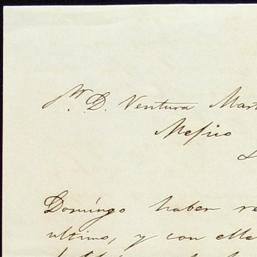 Sr. D. Ventura Mart
Mejico
Domingo haber re
ultimo, y con ella